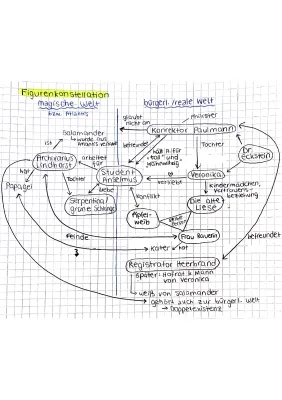 Figurenkonstellation
magische Welt
bzw. Atlantis
bürgerl./reale Welt
Salamander
wurde aus
Atlantis verbannt
ist
glaubt
nicht an
Konrektor Paulmann
befreundet
hält A. für
"toll" und
Tochter
Dr.
Eckstein
Archivarius
Lindhorst
arbeitet
für
Student
Anselmus
verliebt
Veronika
hat
Papagei
Tochter
Liebe
Serpentina/
grüne Schlange
Konflikt
Kindermädchen,
Vertrauens-
beziehung
Die alte
Liese
Äpfel-
weib
Frau Rauerin
Feinde
Kater
hat
befreundet
Registrator Heerbrand
später: Hofrat & Mann
von Veronika
weiß von Salamander
gehört auch zur bürgerl. Welt
→ Doppelexistenz